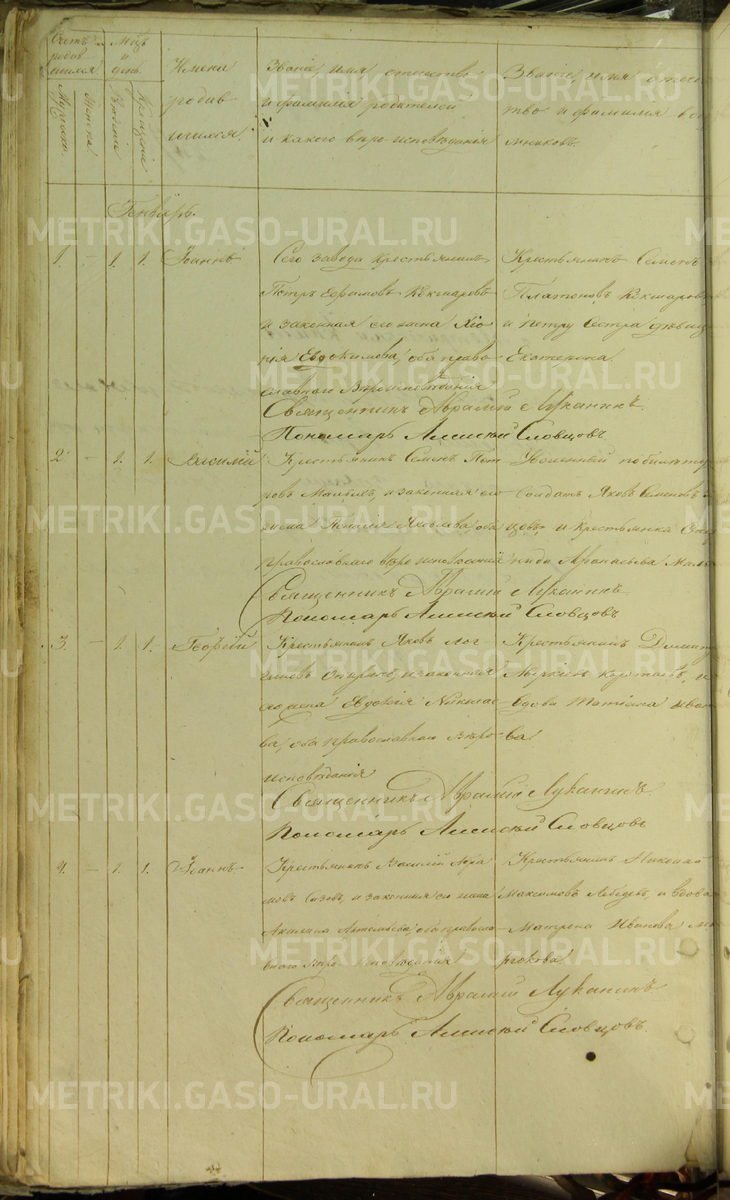 Счетъ родившихся
Мужеска. Женска.
Мѣц. и день
Рожденія Крещенія
Имена
родив
шихся.
Званіе, имя отчество
и фамилія родителей
и какого вѣроисповѣданія
Званіе, имя отчес
тво и фамилія вос
мниковъ.
Генварь.
1. – 1. 1. Іоаннъ
Сего завода крестьянинъ
Петръ Ефремовъ Кокшаровъ
и законная его жена Хіо
нія Евдокимова, оба право
славнаго вѣроисповѣданія
Крестьянинъ Семенъ
Платоновъ Кокшаровъ
и Петру сестра дѣвица
Екатерина
Священникъ Аврамій Луканинъ
Пономарь Алексій Словцовъ
2 – 1. 1. Василій
Крестьянинъ Семенъ Пет
ровъ и законная его
жена Яковлева, оба
православнаго вѣроисповѣданія
Уволенный по билету
солдатъ Яковъ Семеновъ
цовъ, и крестьянка
Афанасьева
Священникъ Аврамій Луканинъ
Пономарь Алексій Словцовъ
3. – 1. 1. Георгій
Крестьянинъ Яковъ Лог
иновъ и законная
его жена Евдокія Николае
ва, оба православнаго вѣро
исповѣданія
Крестьянинъ Димит
и
вдова Татіана Ива
ва
Священникъ Аврамій Луканинъ
Пономарь Алексій Словцовъ
4. – 1. 1. Іоаннъ
Крестьянинъ Василій
мовъ Сизовъ, и законная его жена
Акилина Артемьева, оба правосла
внаго вѣроисповѣданія
Крестьянинъ Николай
Максимовъ Лебедевъ, и вдова
Матрена Иванова
Священникъ Аврамій Луканинъ
Пономарь Алексій Словцовъ
METRIKI.GASO-URAL.RU